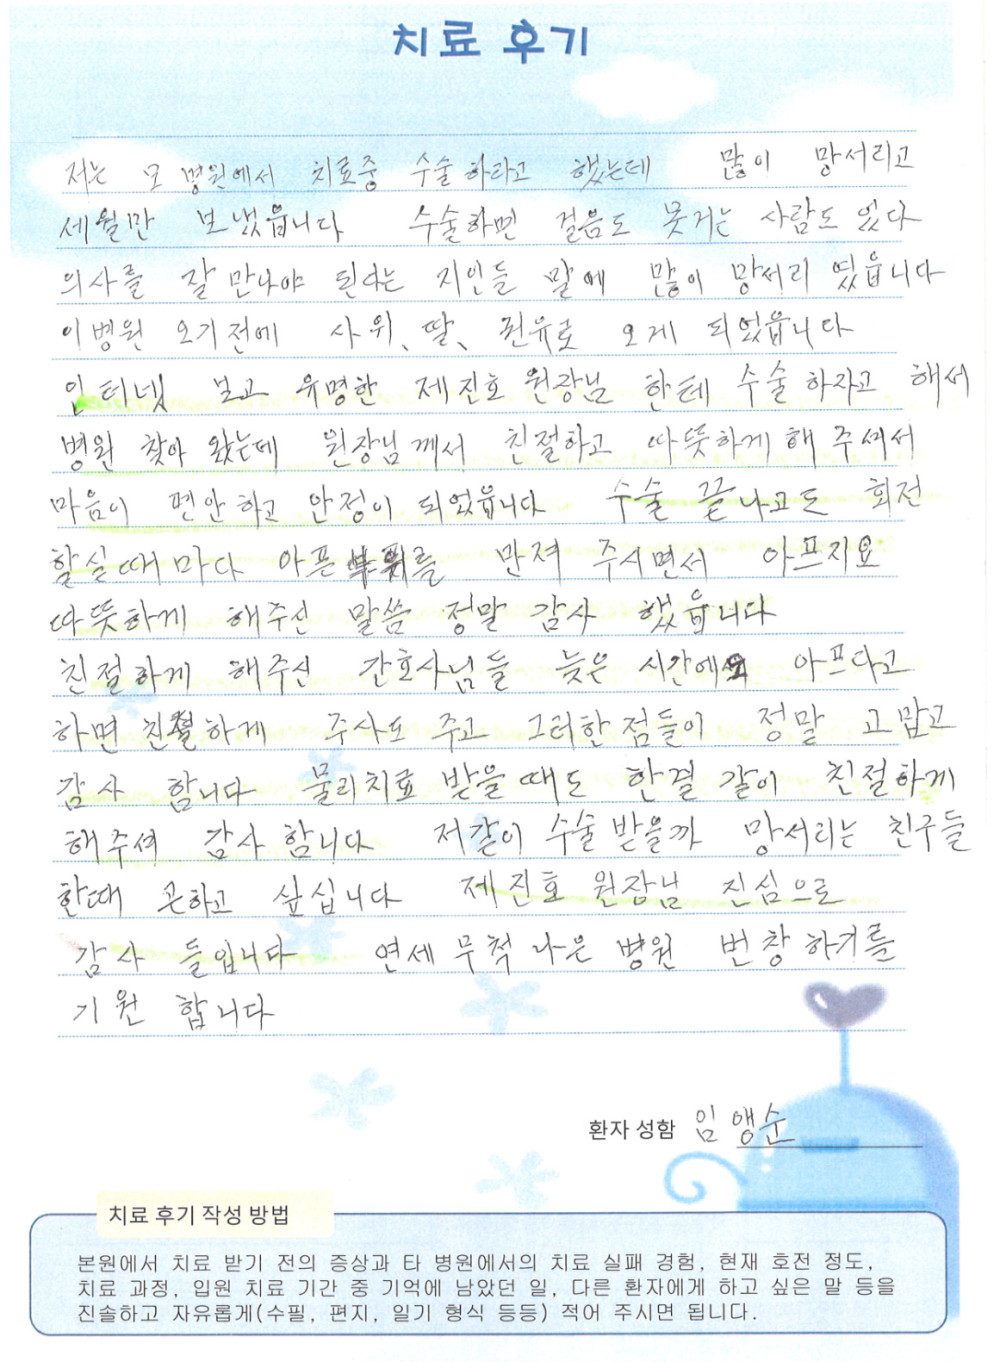 치료 후기
저는 모 병원에서 치료중 수술 하라고 했는데 많이 망서리고
세월만 보냈읍니다 수술하면 걸음도 못거는 사람도 있다
의사를 잘 만나야 된다는 지인들 말에 많이 망서리 였읍니다
이병원 오기전에 사위、딸、권유로 오게 되었읍니다
인터넷 보고 유명한 제진호 원장님 한테 수술 하자고 해서
병원 찾아 왔는데 원장님께서 친절하고 따뜻하게 해 주셔서
마음이 편안하고 안정이 되었읍니다 수술 끝나고도 회전
할실때마다 아픈 부위를 만져 주시면서 아프지요
따뜻하게 해주신 말씀 정말 감사 했읍니다
친절하게 해주신 간호사님들 늦은 시간에 아프다고
하면 친절하게 주사도 주고 그러한 점들이 정말 고맙고
감사 합니다 물리치료 받을때도 한결 같이 친절하게
해주셔 감사 합니다 저같이 수술 받을까 망서리는 친구들
한때 곤하고 싶십니다 제진호 원장님 진심으로
감사 들입니다 연세 무척 나은 병원 번창하기를
기원 합니다
환자 성함 임앵순
치료 후기 작성 방법
본원에서 치료 받기 전의 증상과 타 병원에서의 치료 실패 경험, 현재 호전 정도,
치료 과정, 입원 치료 기간 중 기억에 남았던 일, 다른 환자에게 하고 싶은 말 등을
진솔하고 자유롭게(수필, 편지, 일기 형식 등등) 적어 주시면 됩니다.